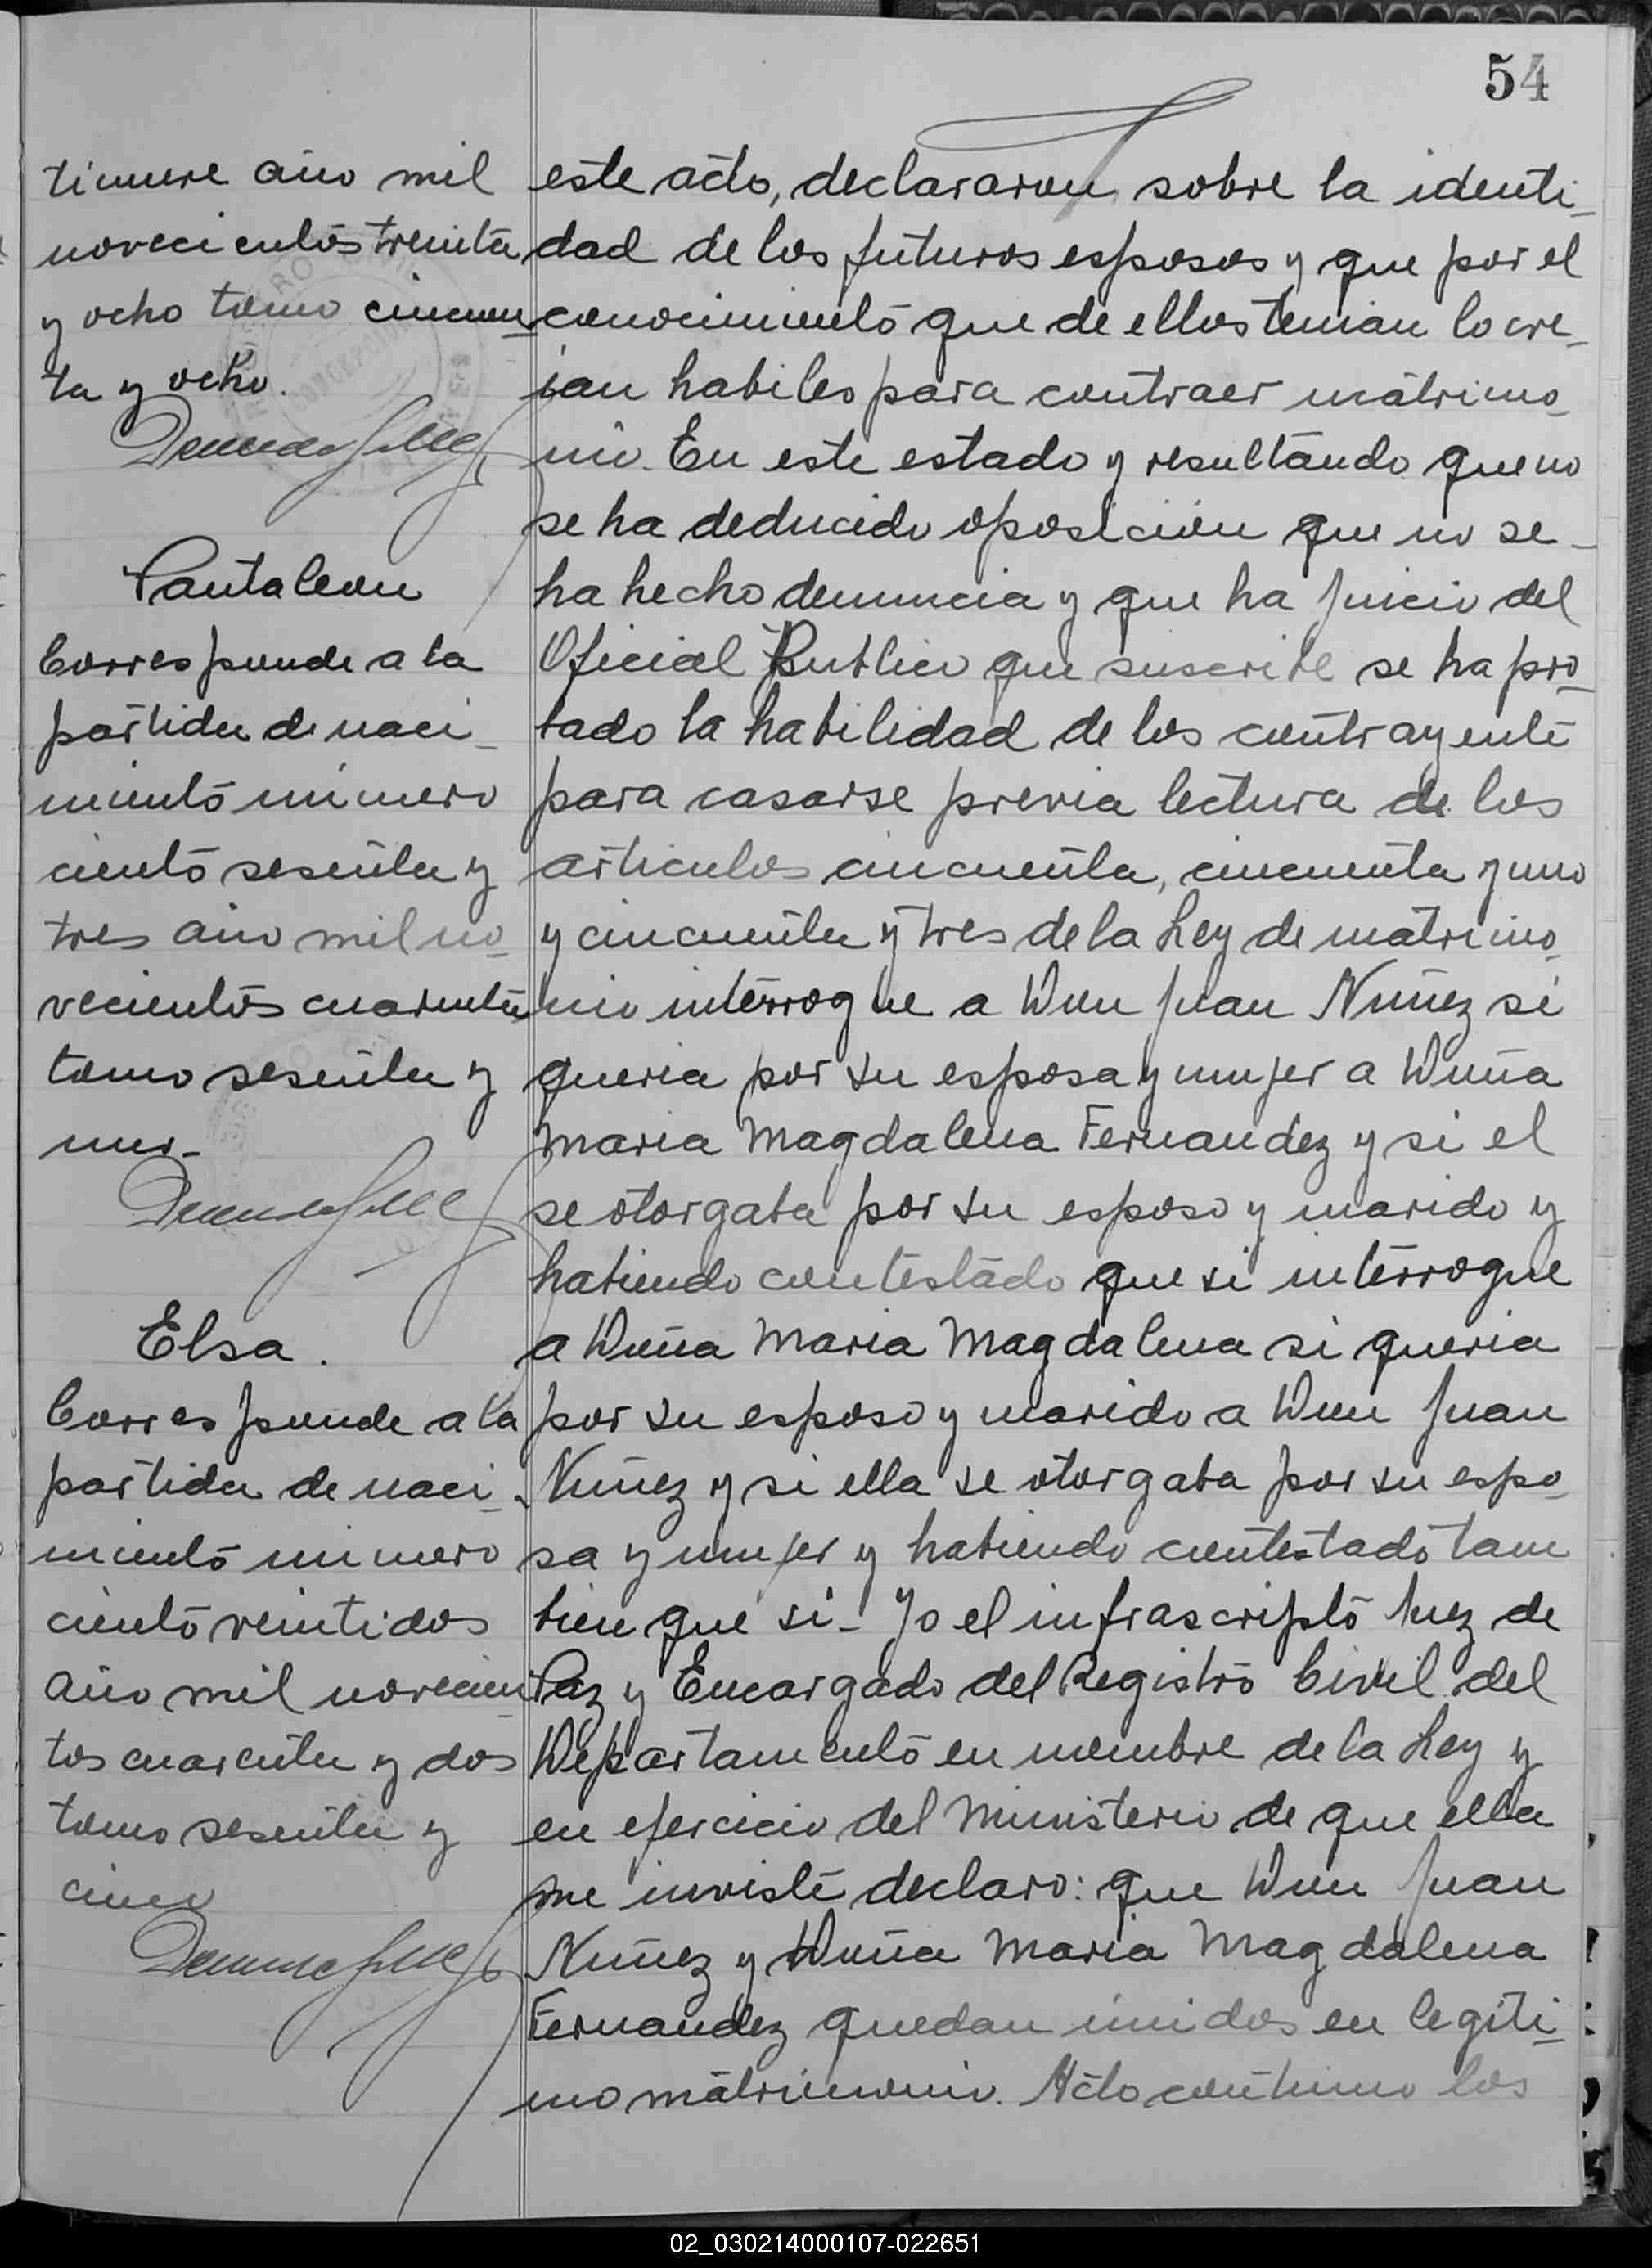 54
tinuere año mil
novecientos treinta
y ocho tomo cincuen
ta y ocho.
Pantaleon
Corresponde a la
partida de naci_
miento número
ciento sesenta y
tres año mil no_
vecientos cuarenta
tomo sesenta y
uno_
Elsa.
Corresponde a la
partida de naci_
miento número
ciento veintidos
año mil novecien_
tos cuarenta y dos
tomo sesenta y
cinco
este acto, declararon sobre la identi_
dad de los futuros esposos y que por el
conocimiento que de ellos tenian lo cre_
ian habiles para contraer matrimo_
nio. En este estado y resultando que no
se ha deducido oposicion que no se_
ha hecho denuncia y que ha juicio del
Oficial Publico que suscribe se ha pro_
bado la habilidad de los contrayente
para casarse previa lectura de los
articulos cincuenta, cincuenta y uno
y cincuenta y tres de la Ley de matrimo_
nio interrogue a Don Juan Nuñez si
queria por su esposa y mujer a Doña
Maria Magdalena Fernandez y si el
se otorgaba por su esposo y marido y
habiendo contestado que si interrogue
a Doña Maria Magdalena si queria
por su esposo y marido a Don Juan
Nuñez y si ella se otorgaba por su espo_
sa y mujer y habiendo contestado tam
bien que si_ Yo el infrascripto Juez de
Paz y Encargado del Registro Civil del
Departamento en nombre de la Ley y
en ejercicio del Ministerio de que ella
me inviste declaro: que Don Juan
Nuñez y Doña Maria Magdalena
Fernandez quedan unidos en legiti_
mo matrimonio. Acto continuo los
02_030214000107-022651